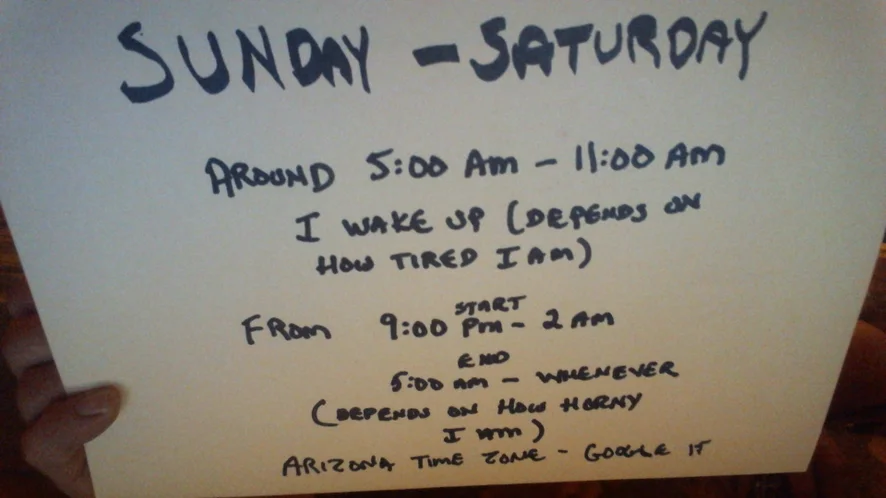 SUNDAY - SATURDAY
AROUND 5:00 AM - 11:00 AM
I WAKE UP (DEPENDS ON
HOW TIRED I AM)
START
FROM 9:00 PM - 2 AM
END
5:00 AM - WHENEVER
(DEPENDS ON HOW HORNY
I AM)
ARIZONA TIME ZONE - GOOGLE IT